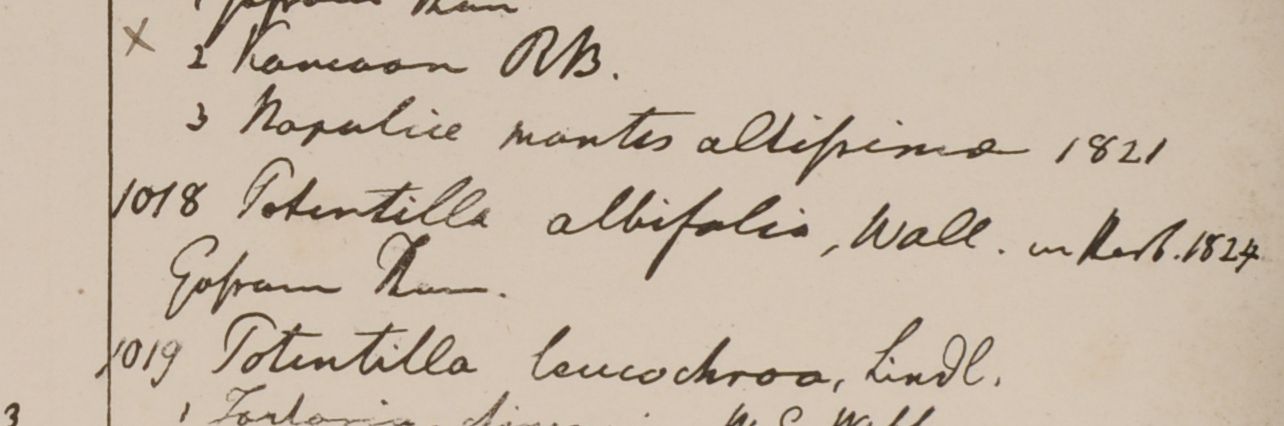 1 Gossam Than
× 2 Kamaon RB.
3 Napaliæ montes altissimæ 1821
1018 Potentilla albifolia, Wall. in Herb. 1824
Gossam Than.
1019 Potentilla leucochroa, Lindl.
3 1